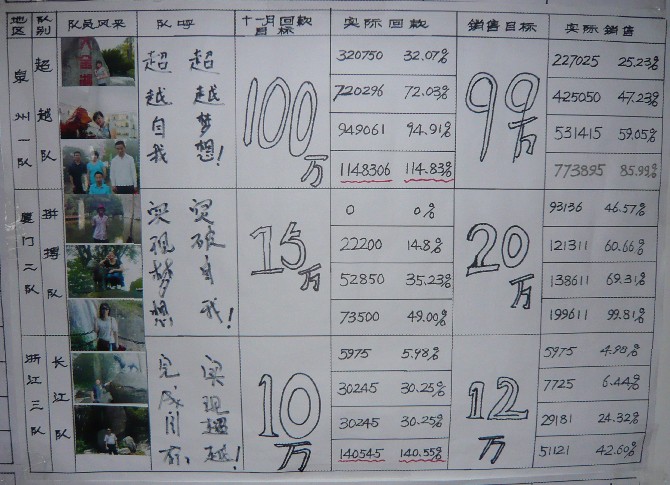 地区 队别 队员风采 队呼 十一月回款目标 实际回款 销售目标 实际销售
泉州一队 超越队
超越自我
超越梦想!
100万
320750 32.07%
720296 72.03%
949061 94.91%
1148306 114.83%
99万
227025 25.23%
425050 47.23%
531415 59.05%
773895 85.99%
厦门二队 拼搏队
实现梦想
突破自我!
15万
0 0%
22200 14.8%
52850 35.23%
73500 49.00%
20万
93136 46.57%
121311 60.66%
138611 69.31%
199611 99.81%
浙江三队 长江队
完成目标,
实现超越!
10万
5975 5.98%
30245 30.25%
30245 30.25%
140545 140.55%
12万
5975 4.98%
7725 6.44%
29181 24.32%
51121 42.60%